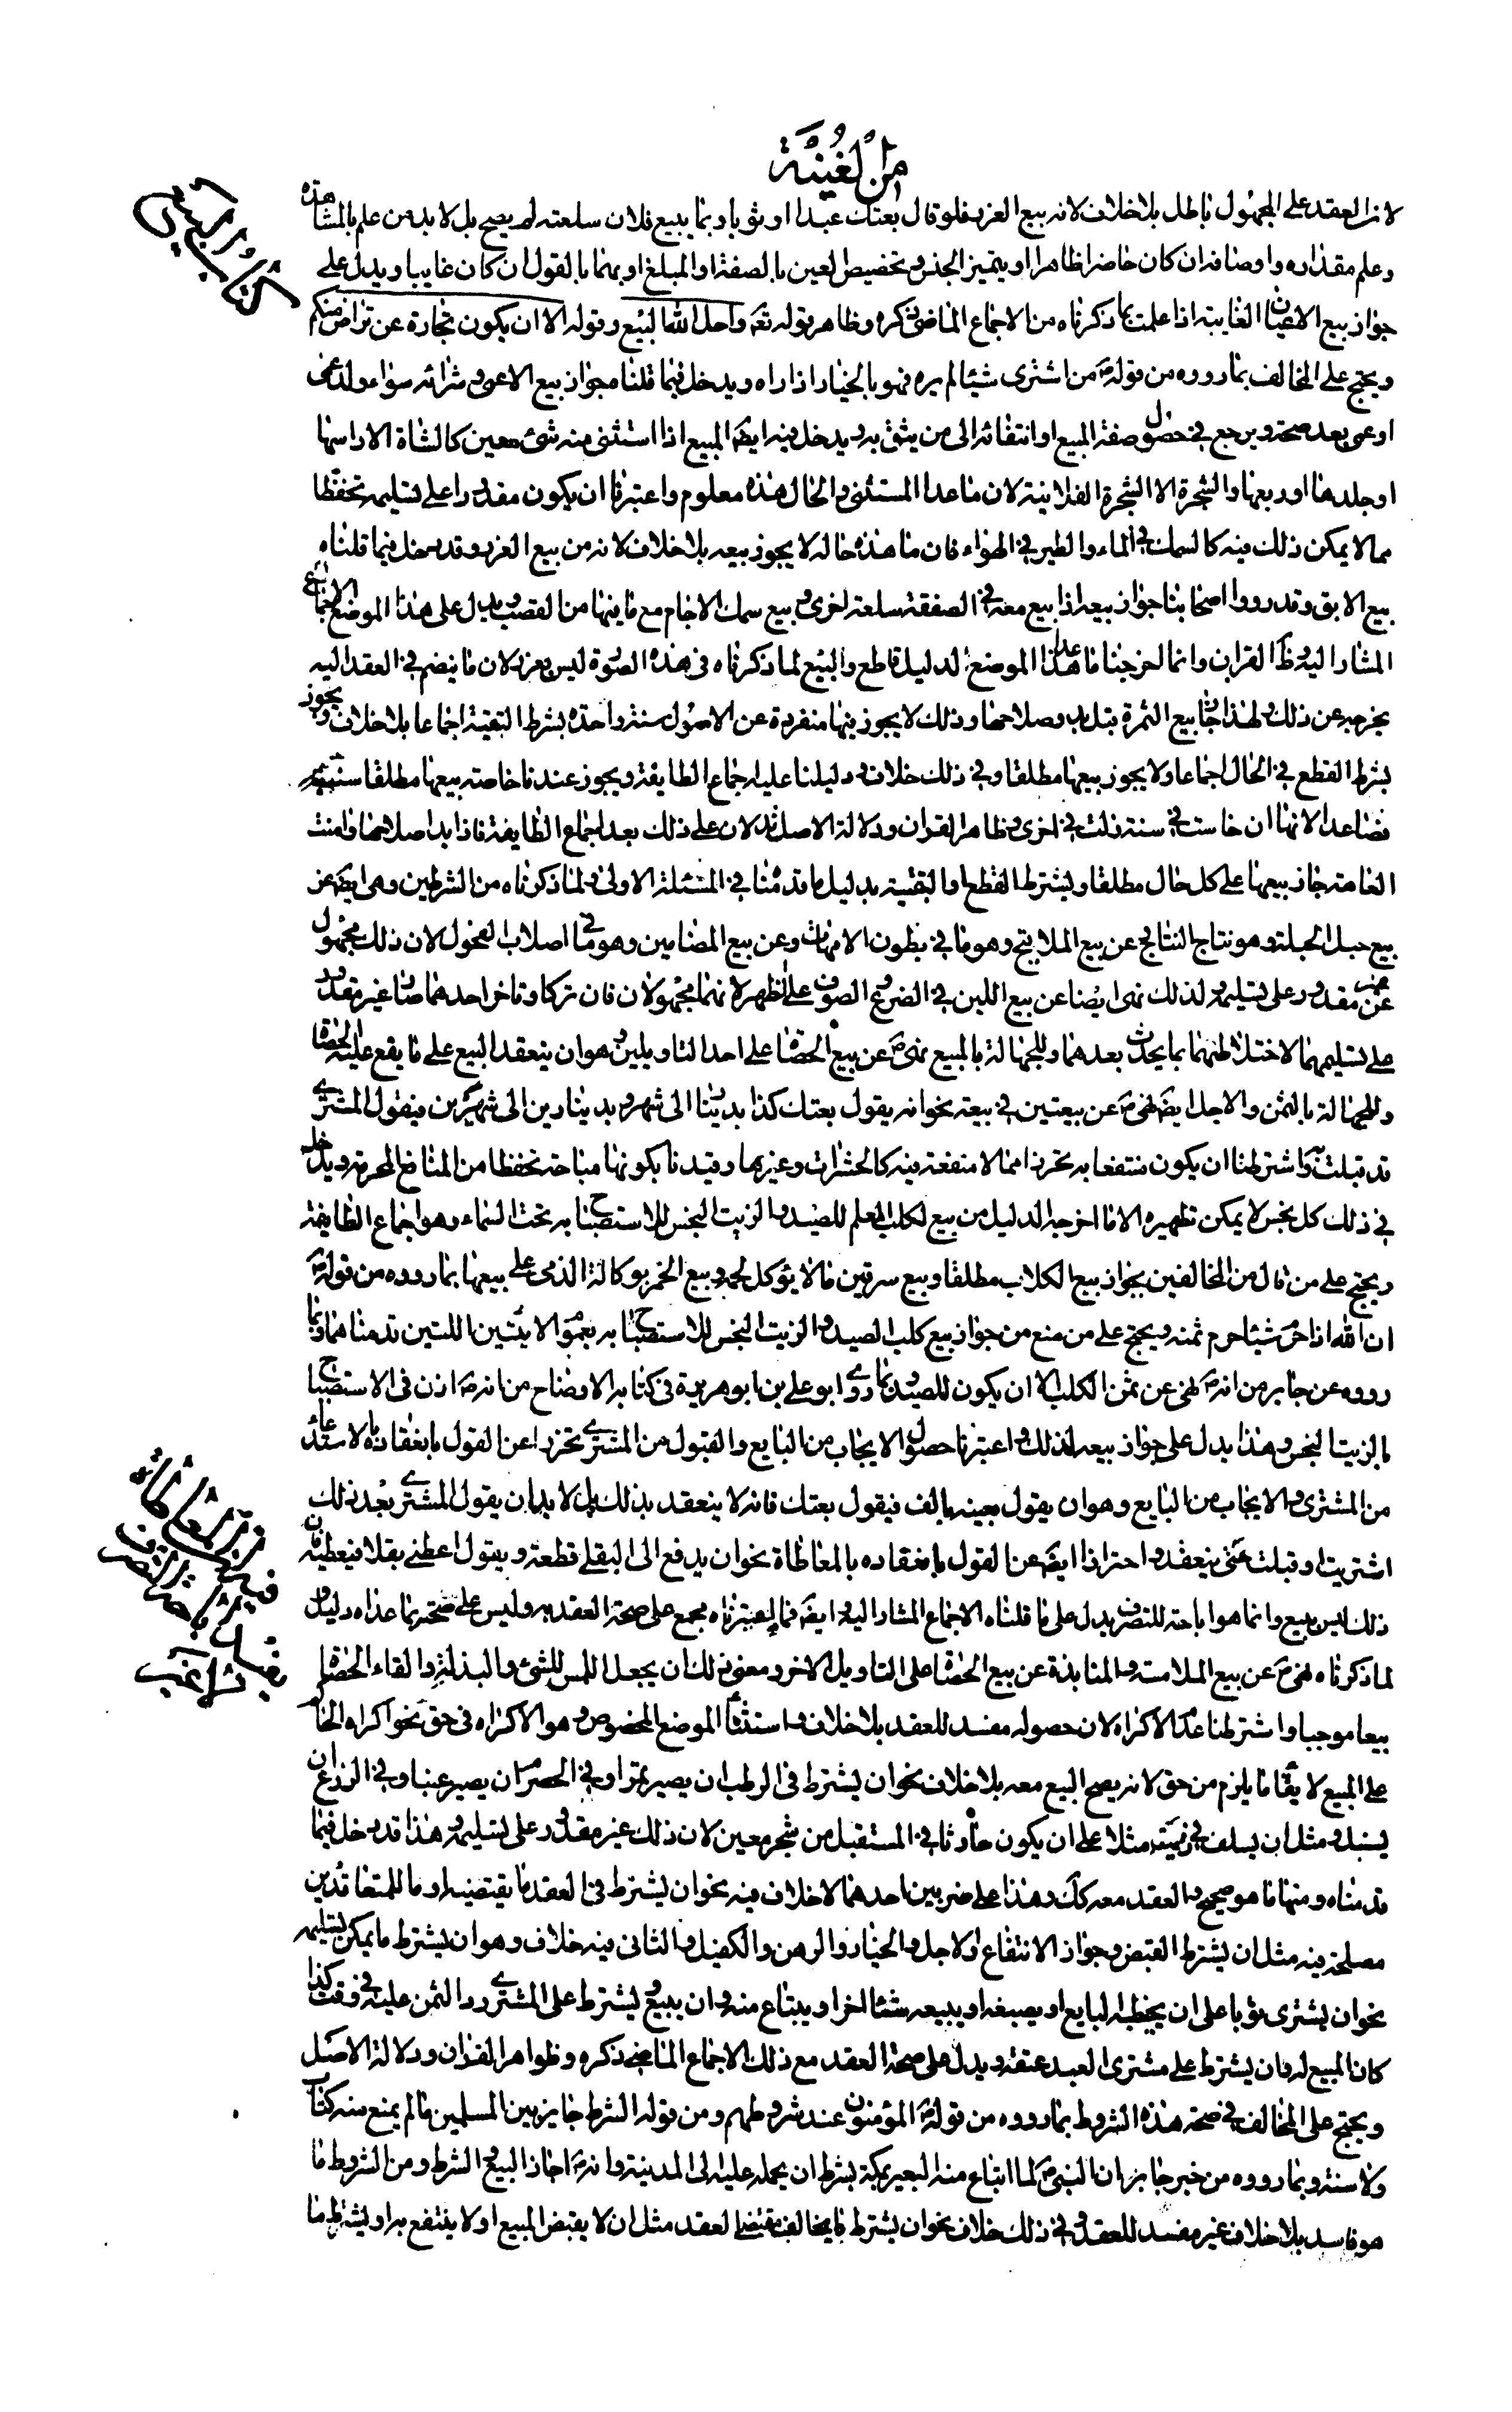 من الغنية
كتاب البيع
لان العقد على المجهول باطل بلا خلاف لانه بيع الغرر فلو قال بعتك عبدا او ثوبا وبما يبيع فلان سلعته لم يصح بل لا بد من علم بالمشاهدة
وعلم مقداره واوصافه ان كان حاضرا ظاهرا او بتميز الجنس وتخصيص العين بالصفة او المبلغ او بهما بالقول ان كان غايبا ويدل على
جواز بيع الاعيان الغايبة اذا علمت بما ذكرناه من الاجماع الماضي ذكره وظاهر قوله تع واحل الله البيع وقوله الا ان يكون تجارة عن تراض منكم
ويحتج على المخالف بما رووه من قوله ص من اشترى شيئا لم يره فهو بالخيار اذا راه ويدخل فيما قلناه جواز بيع الاعمى وشرائه سواء ولد اعمى
او عمى بعد صحة ويرجع في حصول صفة المبيع او انتفائه الى من يثق به ويدخل فيه ايضا المبيع اذا استثنى منه شئ معين كالشاة الا راسها
او جلدها او ربعها والشجرة الا الشجرة الفلانية لان ما عدا المستثنى والحال هذه معلوم واعتبرنا ان يكون مقدورا على تسليمه تحفظا
مما لا يمكن ذلك فيه كالسمك في الماء والطير في الهواء فان ما هذه حاله لا يجوز بيعه بلا خلاف لانه من بيع الغرر وقد دخل فيما قلناه
بيع الابق وقد رووا اصحابنا جواز بيعه اذا بيع معه في الصفقة سلعة اخرى وبيع سمك الاجام مع ما فيها من القصب ويدل على هذا الموضع الاجماع
المشار اليه وظ القران وانما اخرجنا ما عدا هذا الموضع لدليل قاطع والبيع لما ذكرناه في هذه الصورة ليس بغرر لان ما ينضم في العقد اليه
يخرجه عن ذلك ولهذا جاز بيع الثمرة قبل بدو صلاحها وذلك لا يجوز فيها منفردة عن الاصول سنة واحدة بشرط التبقية اجماعا بلا خلاف ويجوز
بشرط القطع في الحال اجماعا ولا يجوز بيعها مطلقا وفي ذلك خلاف ودليلنا عليه اجماع الطايفة ويجوز عندنا خاصة بيعها مطلقا سنتين
فصاعدا لانها ان خاست في سنة زكت في اخرى وظاهر القران ودلالة الاصل يدلان على ذلك بعد اجماع الطايفة فاذا بدا صلاحها وامنت
العاهة جاز بيعها على كل حال مطلقا وبشرط القطع والتبقية بدليل ما قدمنا في المسئلة الاولى ولما ذكرناه من الشرطين نهى ايضا عن
بيع حبل الحبلة وهو نتاج النتاج عن بيع الملاقيح وهو ما في بطون الامهات وعن بيع المضامين وهو ما في اصلاب الفحول لان ذلك مجهول
غير مقدور على تسليمه ولذلك نهى ايضا عن بيع اللبن في الضرع والصوف على الظهر لانهما مجهولان فان تركا وتاخر احدهما صار غير مقدور
على تسليمهما لاختلاطهما بما يحدث بعدهما وللجهالة بالمبيع نهى ص عن بيع الحصاة على احد التاويلين وهو ان ينعقد البيع على ما يقع عليه الحصاة
وللجهالة بالثمن والاجل ايضا نهى ص عن بيعتين في بيعة نحو انه يقول بعتك كذا بدينار الى شهر وبدينارين الى شهرين فيقول المشترى
قد قبلت واشترطنا ان يكون منتفعا به تحرزا مما لا منفعة فيه كالحشرات وغيرها وقيدنا بكونها مباحة تحفظا من المنافع المحرمة ويدخل
في ذلك كل نجس لا يمكن تطهيره الا ما اخرجه الدليل من بيع الكلب المعلم للصيد والزيت النجس للاستصباح به تحت السماء وهو اجماع الطايفة
ويحتج على من قال من المخالفين بجواز بيع الكلاب مطلقا وبيع سرقين ما لا يؤكل لحمه وبيع الخمر بوكالة الذمى على بيعها بما رووه من قوله ص
ان الله اذا حرم شيئا حرم ثمنه ويحتج على من منع من جواز بيع كلب الصيد والزيت النجس للاستصباح به بعموم الايتين اللتين قدمناهما وبما
رووه عن جابر من انه ص نهى عن ثمن الكلب الا ان يكون للصيد وبما روى ابو علي بن ابو هريرة في كتابه الافصاح من انه ص اذن في الاستصباح
بالزيت النجس وهذا يدل على جواز بيعه لذلك واعتبرنا حصول الايجاب من البايع والقبول من المشترى تحرزا عن القول بانعقاده بالاستدعاء
من المشترى والايجاب من البايع وهو ان يقول بعنيه بالف فيقول بعتك فانه لا ينعقد بذلك بل لا بد ان يقول المشترى بعد ذلك
اشتريت او قبلت حتى ينعقد واحترازا ايضا عن القول بانعقاده بالمعاطاة نحو ان يدفع الى البقلى قطعة ويقول اعطنى بقلا فيعطيه فان
ذلك ليس ببيع وانما هو اباحة للتصرف يدل على ما قلناه الاجماع المشار اليه وايضا فما اعتبرناه مجمع على صحة العقد به وليس على صحته بما عداه دليل و
لما ذكرناه نهى ص عن بيع الملامسة والمنابذة عن بيع الحصاة على التاويل الاخر ومعنى ذلك ان يجعل اللمس للشئ والنبذ له والقاء الحصاة
بيعا موجبا واشترطنا عدم الاكراه لان حصوله مفسد للعقد بلا خلاف واستثنا الموضع المخصوص وهو الاكراه في حق نحو اكراه الحاكم
على المبيع لايفاء ما يلزم من حق لانه يصح البيع معه بلا خلاف نحو ان يشترط في الرطب ان يصير تمرا وفي الحصرم ان يصير عنبا وفي الزرع ان
يسنبل ومثل ان يسلف في زيت مثلا على ان يكون حادثا في المستقبل من شجر معين لان ذلك غير مقدور على تسليمه وهذا قد دخل فيما
قدمناه ومنها ما هو صحيح والعقد معه كك وهذا على ضربين احدهما لا خلاف فيه نحو ان يشترط في العقد ما يقتضيه او ما للمتعاقدين
مصلحة فيه مثل ان يشترط القبض وجواز الانتفاع والاجل والخيار والرهن والكفيل والثانى فيه خلاف وهو ان يشترط ما يمكن تسليمه
نحو ان يشترى ثوبا على ان يخيطه البايع او يصبغه او يبيعه شيئا اخر او يبتاع منه وان يبيع ويشترط على المشترى رد الثمن عليه في وقت كذا
كان المبيع له وان يشترط على مشترى العبد عتقه ويدل على صحة العقد مع ذلك الاجماع الماضى ذكره وظواهر القران ودلالة الاصل
ويحتج على المخالف في صحة هذه الشروط بما رووه من قوله ص المؤمنون عند شروطهم ومن قوله الشرط جايز بين المسلمين ما لم يمنع منه كتاب
ولا سنة وبما رووه من خبر جابر ان النبى ص لما ابتاع منه البعير بمكة بشرط ان يحمله عليه الى المدينة وانه ص اجاز البيع والشرط ومن الشروط ما
هو فاسد بلا خلاف غير مفسد للعقد وفي ذلك خلاف نحو ان يشترط ما يخالف مقتضى العقد مثل ان لا يقبض المبيع او لا ينتفع به او يشترط ما